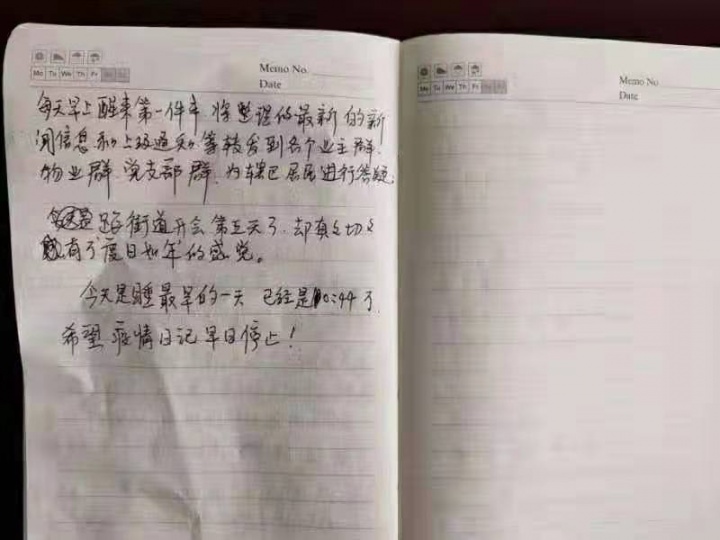 Memo No.
Mo Tu We Th Fr Sa Su
Date
每天早上醒来第一件事,将整理的最新的新
闻信息和上级通知等转发到各个业主群、
物业群、党支部群,为辖区居民进行答疑
跟街道开会第五天了,却真真切切
有了度日如年的感觉。
今天是睡最早的一天 已经是10:44了,
希望疫情日记早日停止!
Memo No
Mo Tu We Th Fr Sa Su
Date